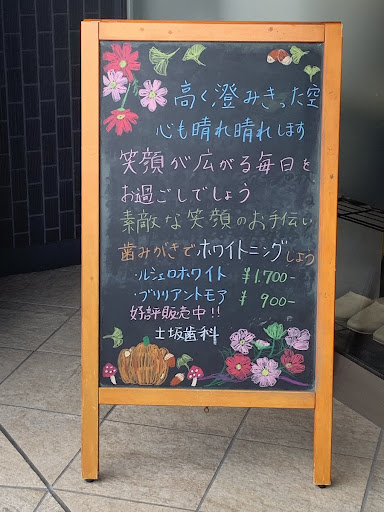 高く澄みきった空
心も晴れ晴れします
笑顔が広がる毎日を
お過ごしでしょう
素敵な笑顔のお手伝い
歯みがきでホワイトニングしよう
・ルシェロホワイト ¥1.700-
・ブリリアントモア ¥ 900-
好評販売中!!
土坂歯科